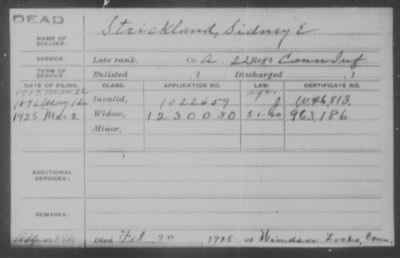 DEAD
NAME OF SOLDIER: Strickland, Sidney E.
SERVICE: Late rank, Co. A, 22 Reg't Conn Inf
TERM OF SERVICE: Enlisted , 1 Discharged , 1
DATE OF FILING. CLASS. APPLICATION NO. LAW. CERTIFICATE NO.
1896 May 12 Invalid, 1022659 1046,813
1925 Mar 2 Widow, 1230030 5-1-20 963,186
Minor,
ADDITIONAL SERVICES:
REMARKS:
Died Feb 20, 1925, at Windsor Locks, Conn.